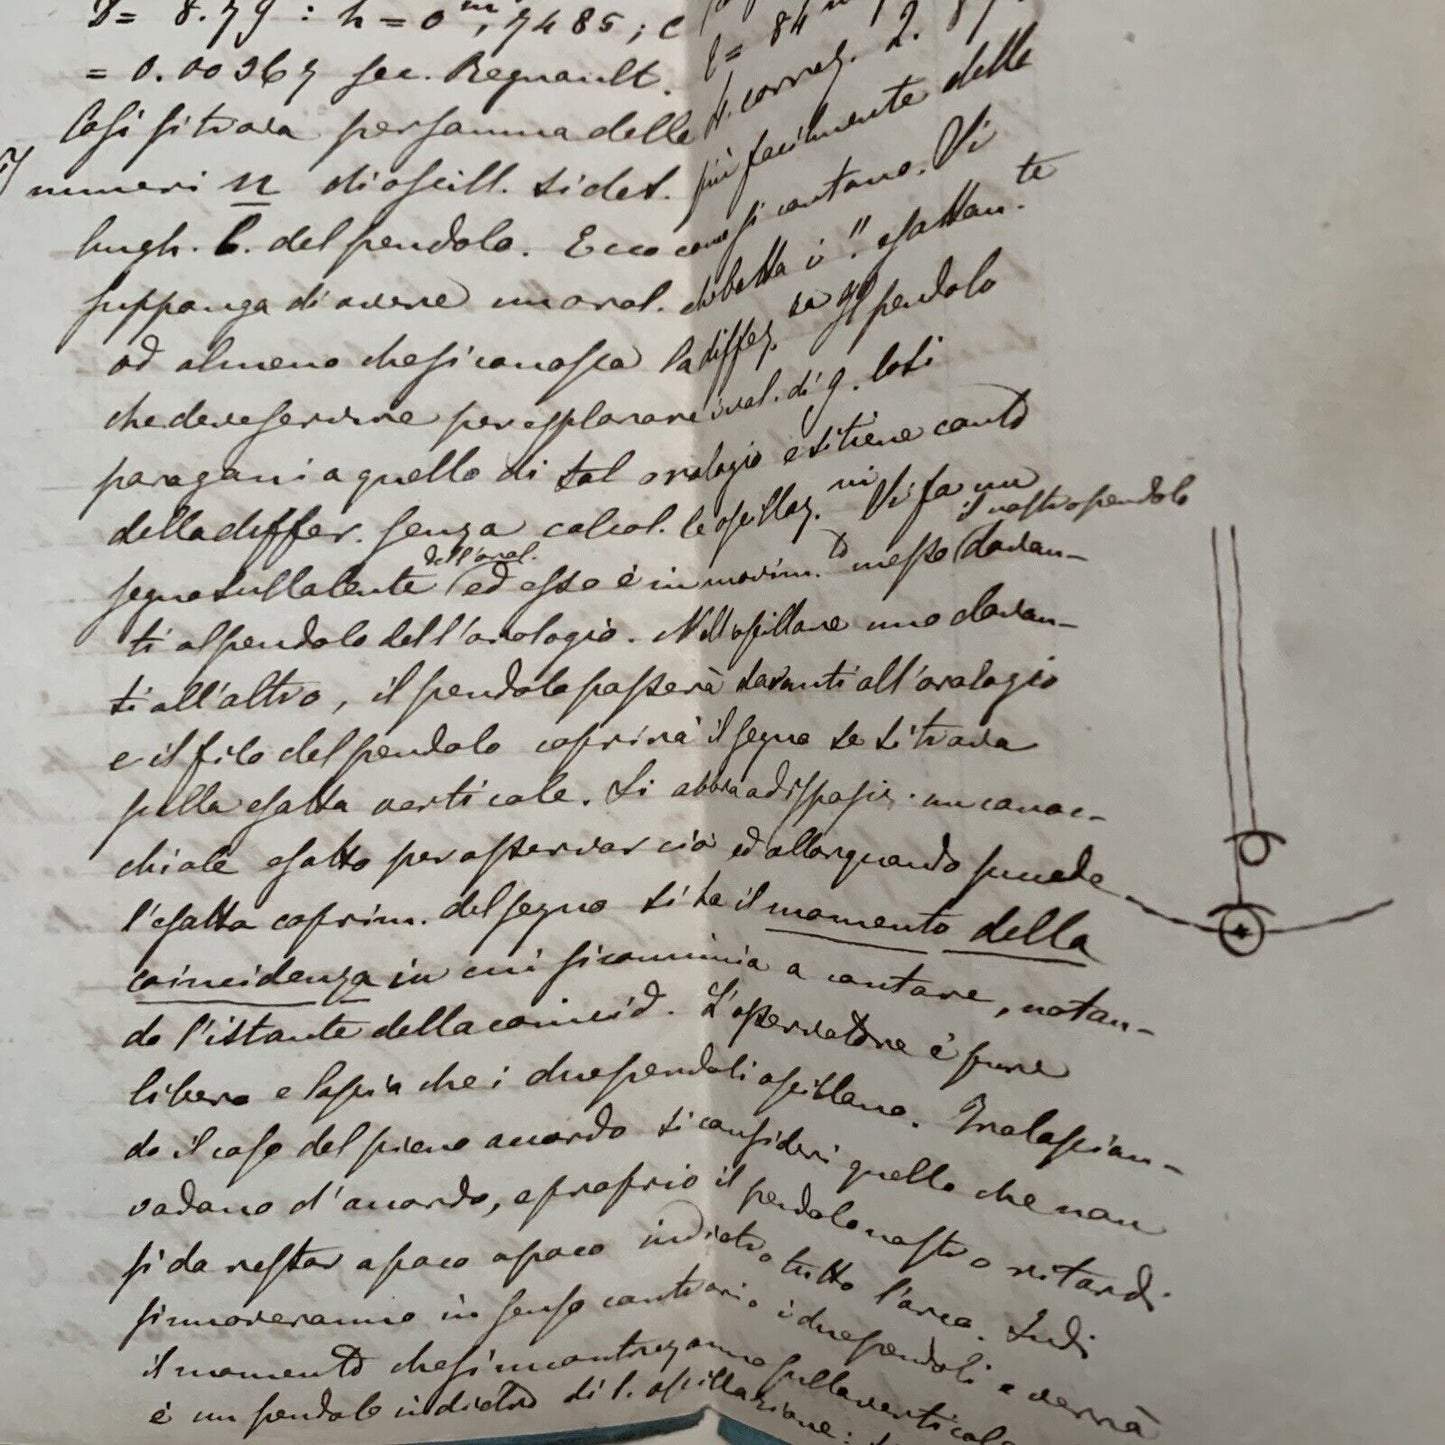 = 8.79 : h = 0,m7485 ; C l = 84
= 0.00367 sec. Regnault. 2.
Così si trova per somma delle più facilmente delle
numeri n di oscill. si det. si contano. Si
lungh. l. del pendolo. Ecco come esattan.te
supponga di avere un orol. che batta i "
od almeno che si conosca la differ. pendolo
che deve servire per esplorare i val. di g. Così
paragoni a quello di tal orologio e si tiene conto
della differ. senza calcol. le oscillaz.ni Si fa un
segno sulla lente dell'orol. ed esso è in movim.to messo il nostro pendolo davan-
ti al pendolo dell'orologio. Nell'oscillare uno davan-
ti all'altro, il pendolo passerà davanti all'orologio
e il filo del pendolo coprirà il segno se si trova
sulla esatta verticale. Si abbia a disposiz. un canoc-
chiale esatto per osservar ciò ed allorquando succede
l'esatta coprim. del segno si ha il momento della
coincidenza in cui si comincia a contare, notan-
do l'istante della coincid. L'osservatore è pure
libero e lascia che i due pendoli oscillano. Tralascian-
do il caso del pieno accordo si consideri quello che non
vadano d'accordo, e proprio il pendolo nostro ritardi
si da restar a poco a poco indietro tutto l'arco. Indi
si moveranno in senso contrario i due pendoli e verrà
il momento che si incontreranno sulla verticale
è un pendolo indietro di 1. oscillazione :